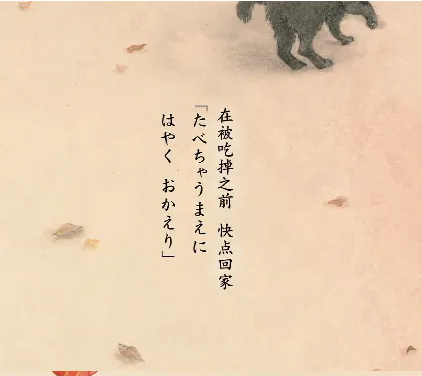 在被吃掉之前　快点回家
「たべちゃうまえに
はやく　おかえり」